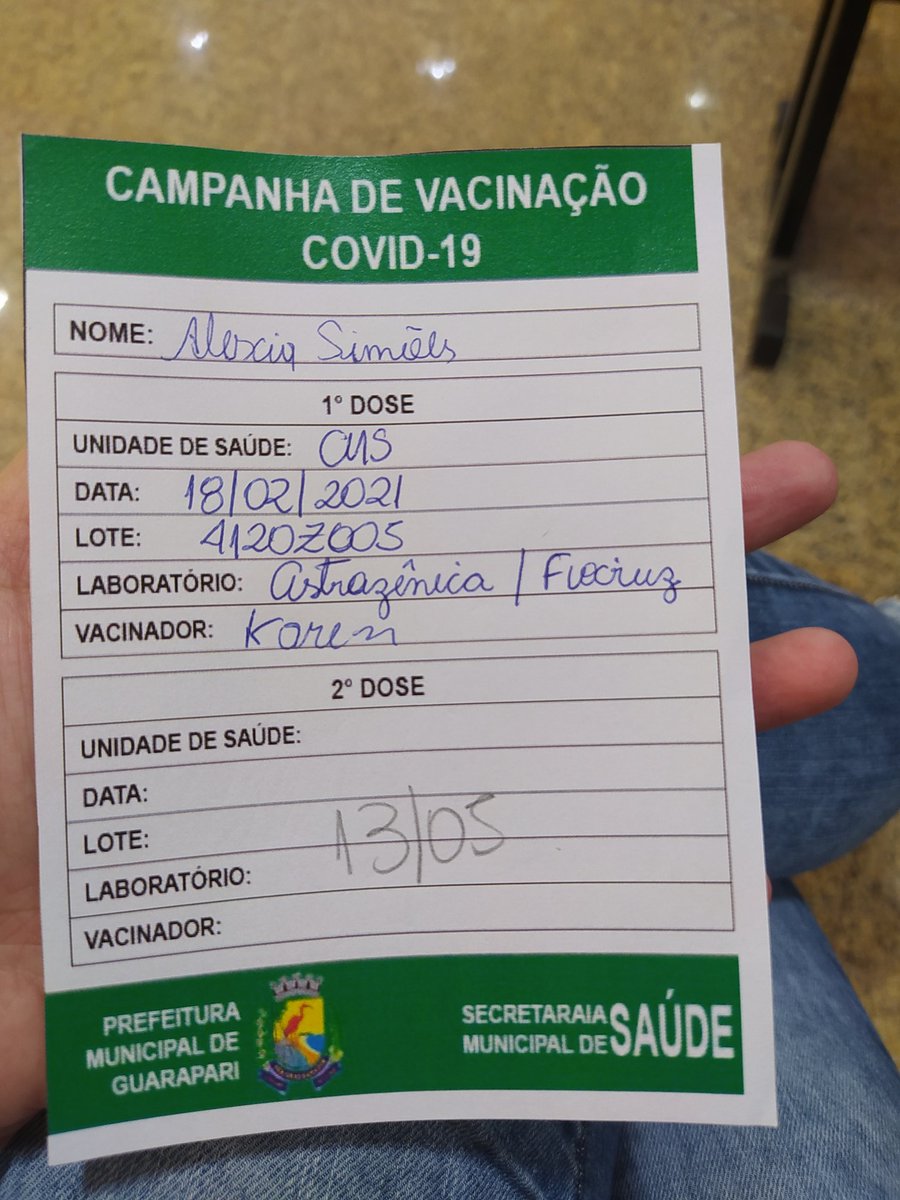 CAMPANHA DE VACINAÇÃO
COVID-19
NOME: Alexia Simões
1° DOSE
UNIDADE DE SAÚDE: CMS
DATA: 18/02/2021
LOTE: 4120Z005
LABORATÓRIO: Astrazênica / Fiocruz
VACINADOR: Karen
2° DOSE
UNIDADE DE SAÚDE:
DATA:
LOTE: 13/05
LABORATÓRIO:
VACINADOR:
PREFEITURA
MUNICIPAL DE
GUARAPARI
SECRETARAIA
MUNICIPAL DE SAÚDE